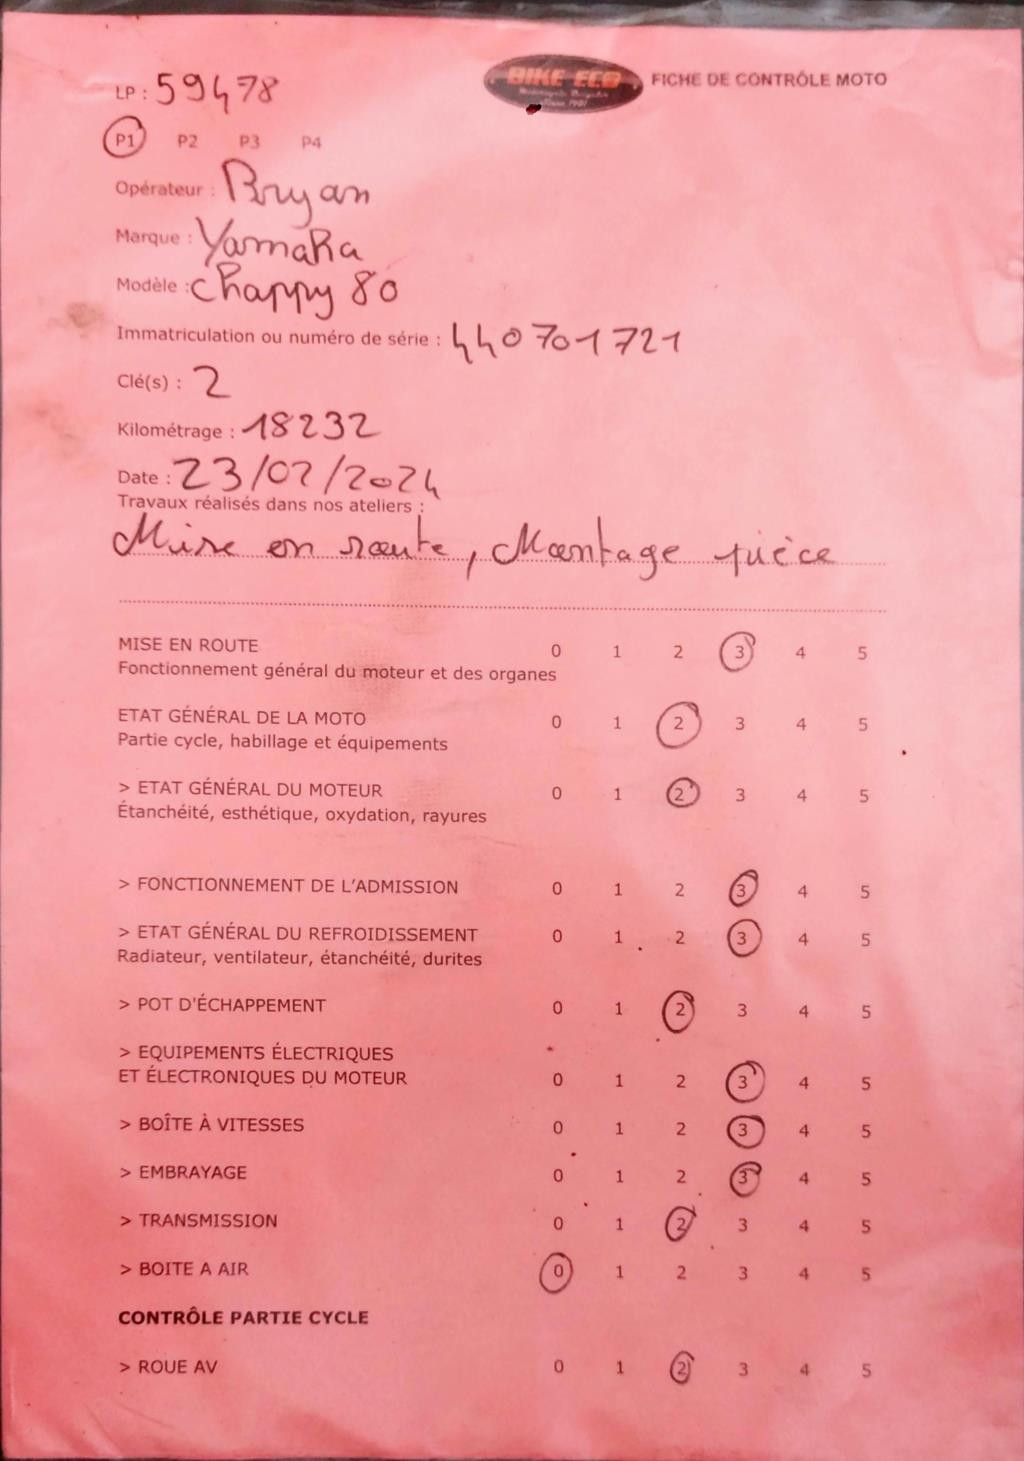 LP : 59478
BIKE ECO
FICHE DE CONTRÔLE MOTO
P1 P2 P3 P4
Opérateur : Bryan
Marque : Yamaha
Modèle : chappy 80
Immatriculation ou numéro de série : 440701721
Clé(s) : 2
Kilométrage : 18232
Date : 23/02/2024
Travaux réalisés dans nos ateliers :
Mise en route, Montage pièce
MISE EN ROUTE 0 1 2 3 4 5
Fonctionnement général du moteur et des organes
ETAT GÉNÉRAL DE LA MOTO 0 1 2 3 4 5
Partie cycle, habillage et équipements
> ETAT GÉNÉRAL DU MOTEUR 0 1 2 3 4 5
Étanchéité, esthétique, oxydation, rayures
> FONCTIONNEMENT DE L'ADMISSION 0 1 2 3 4 5
> ETAT GÉNÉRAL DU REFROIDISSEMENT 0 1 2 3 4 5
Radiateur, ventilateur, étanchéité, durites
> POT D'ÉCHAPPEMENT 0 1 2 3 4 5
> EQUIPEMENTS ÉLECTRIQUES
ET ÉLECTRONIQUES DU MOTEUR 0 1 2 3 4 5
> BOÎTE À VITESSES 0 1 2 3 4 5
> EMBRAYAGE 0 1 2 3 4 5
> TRANSMISSION 0 1 2 3 4 5
> BOITE A AIR 0 1 2 3 4 5
CONTRÔLE PARTIE CYCLE
> ROUE AV 0 1 2 3 4 5